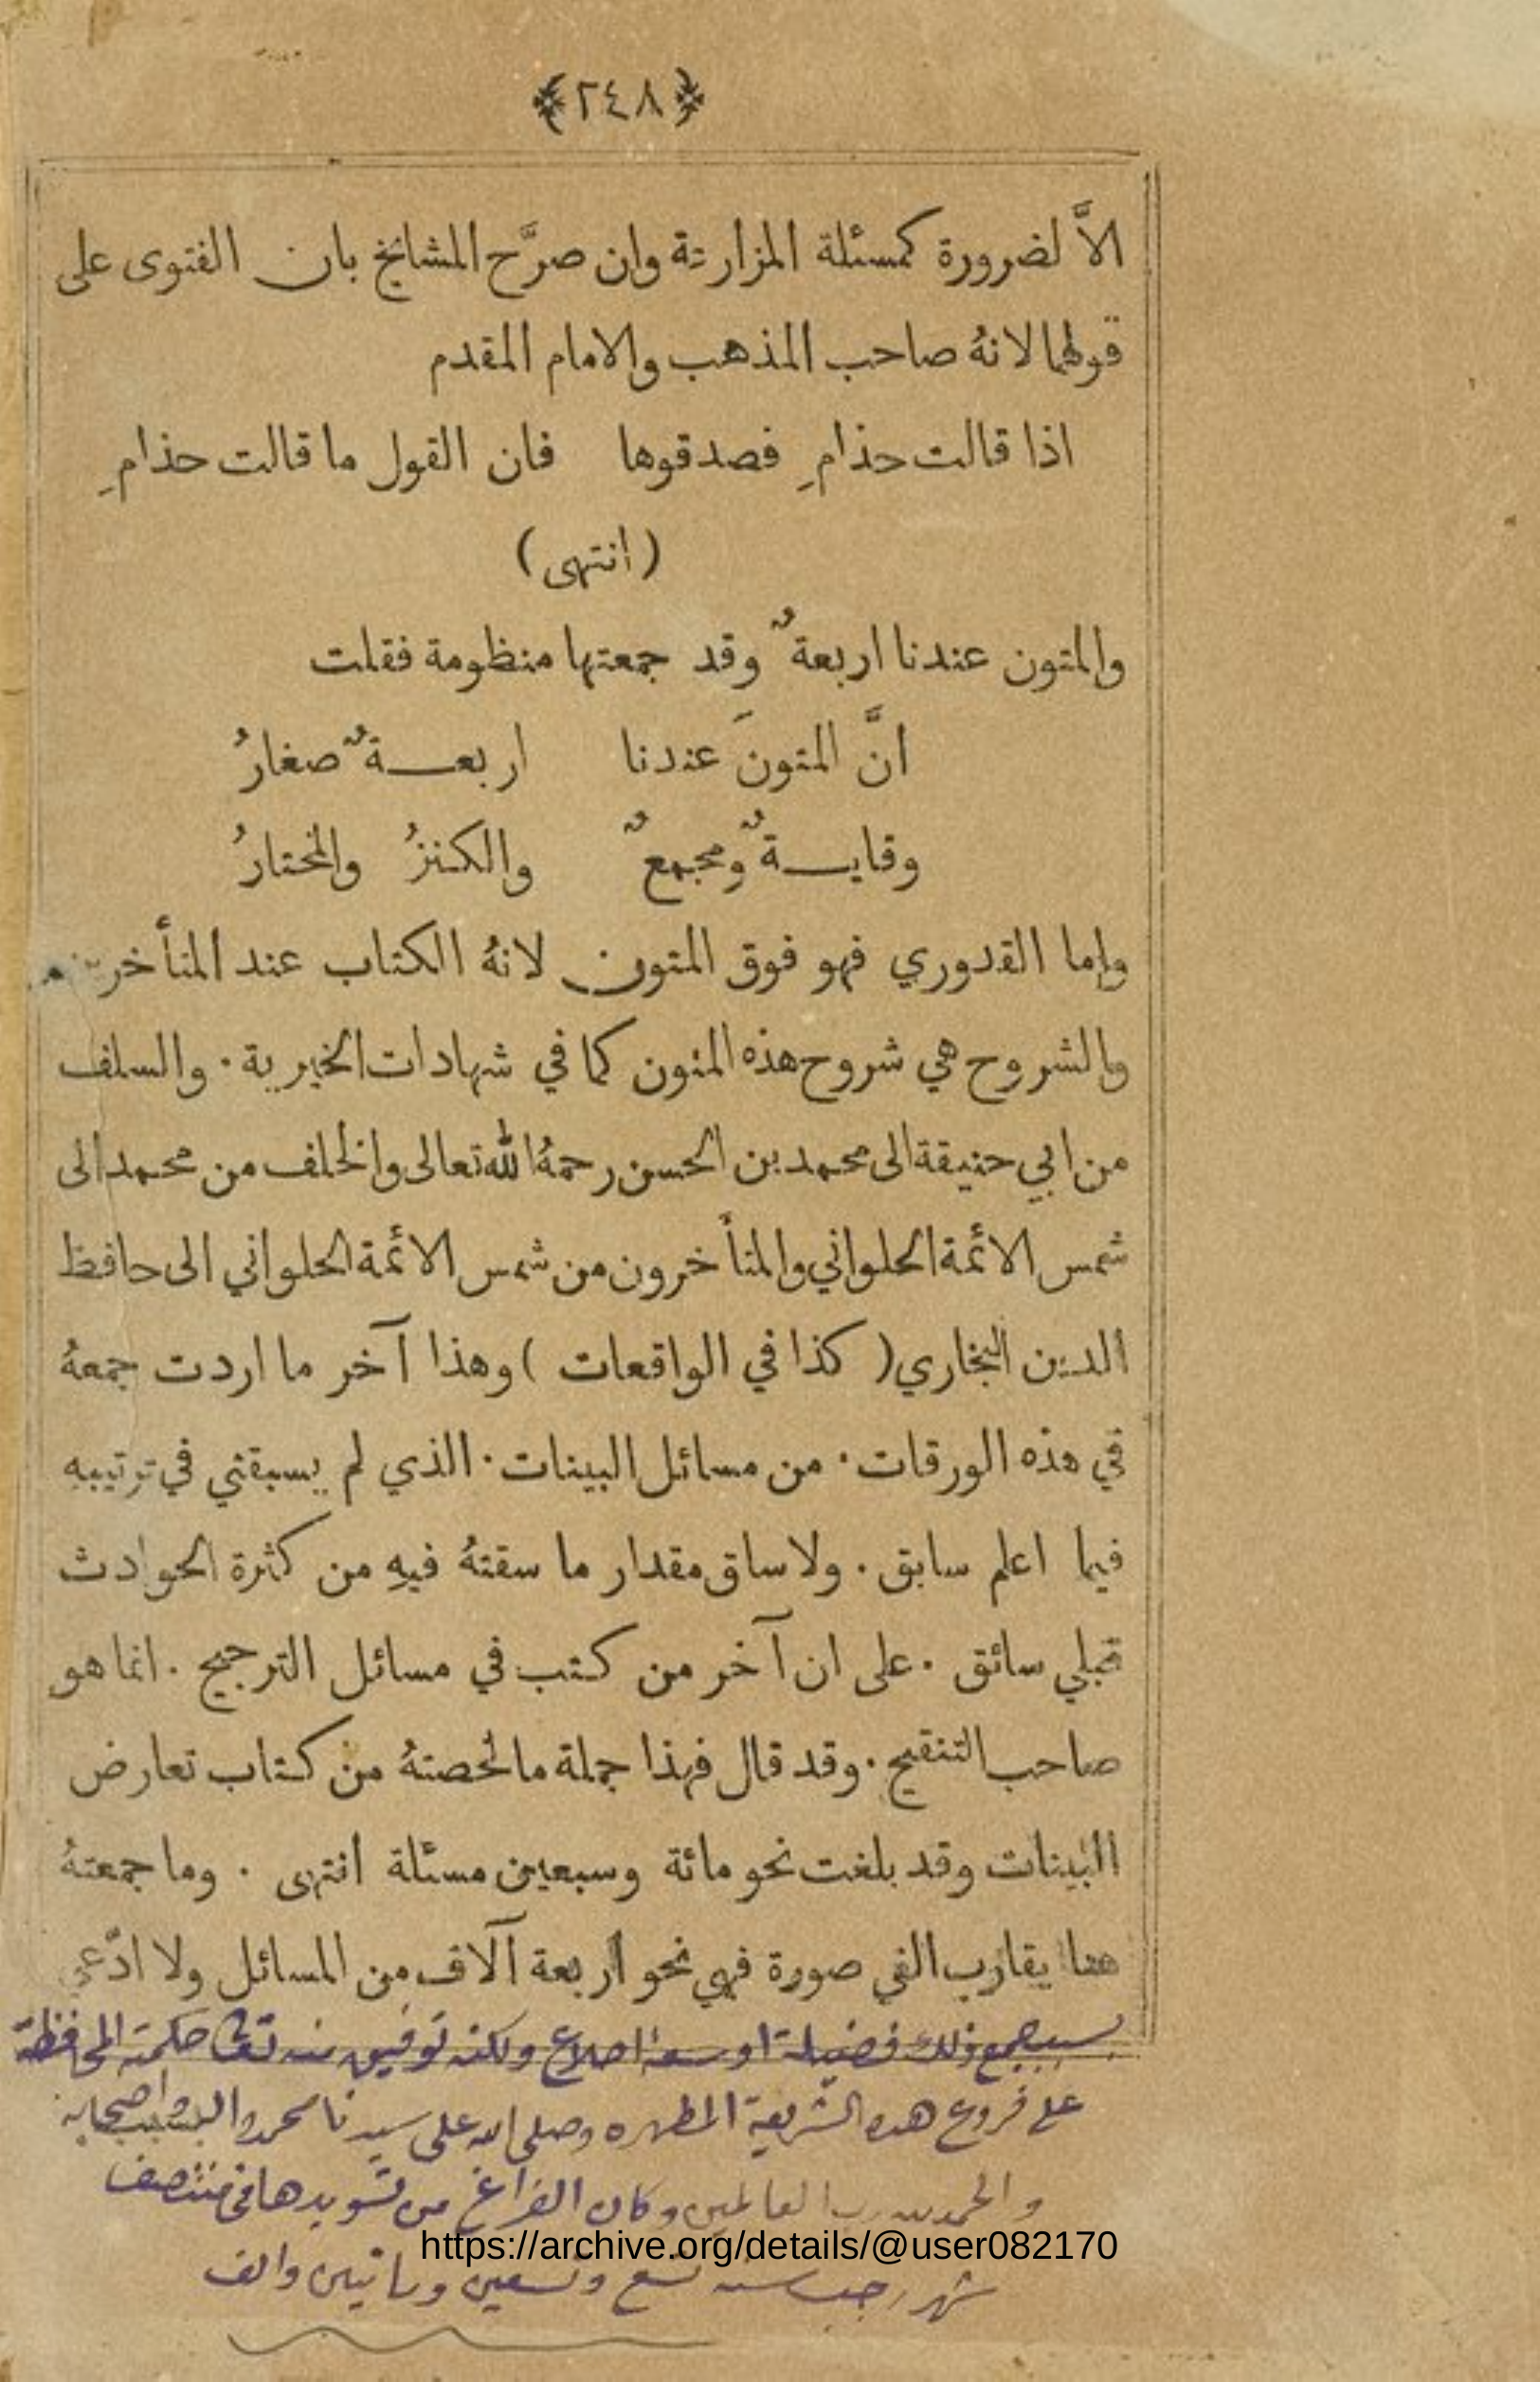 ﴿٢٤٨﴾
الاَّ لضرورة كمسئلة المزارعة وان صرَّح المشايخ بان الفتوى على
قولهما لانهُ صاحب المذهب والامام المقدم
اذا قالت حذامِ فصدقوها فان القول ما قالت حذامِ
(انتهى)
والمتون عندنا اربعةٌ وقد جمعتها منظومة فقلت
انَّ المتونَ عندنا اربعـــةٌ صغارُ
وقايـــةٌ ومجمعٌ والكنزُ والمختارُ
واما القدوري فهو فوق المتون لانهُ الكتاب عند المتأخرين
والشروح هي شروح هذه المتون كما في شهادات الخيرية ٠ والسلف
من ابي حنيفة الى محمد بن الحسن رحمهُ الله تعالى والخلف من محمد الى
شمس الائمة الحلواني والمتأخرون من شمس الائمة الحلواني الى حافظ
الدين البخاري ( كذا في الواقعات ) وهذا آخر ما اردت جمعهُ
في هذه الورقات ٠ من مسائل البينات ٠ الذي لم يسبقني في ترتيبهِ
فيما اعلم سابق ٠ ولا ساق مقدار ما سقتهُ فيهِ من كثرة الحوادث
قبلي سائق ٠ على ان آخر من كتب في مسائل الترجيح ٠ انما هو
صاحب التنقيح ٠ وقد قال فهذا جملة ما لخصتهُ من كتاب تعارض
البينات وقد بلغت نحو مائة وسبعين مسئلة انتهى ٠ وما جمعتهُ
هنا يقارب الفي صورة فهي نحو اربعة آلاف من المسائل ولا ادّعي
بجمع ذلك فضيلة او سعة اطلاع ولكنه توفيق منه تعالى حكمته المحافظة
على فروع هذه الشريعة المطهره وصلى الله على سيدنا محمد واله واصحابه
والحمد لله رب العالمين وكان الفراغ من تسويدها في منتصف
https://archive.org/details/@user082170
شهر رجب سنه تسع وتسعين ومائتين والف